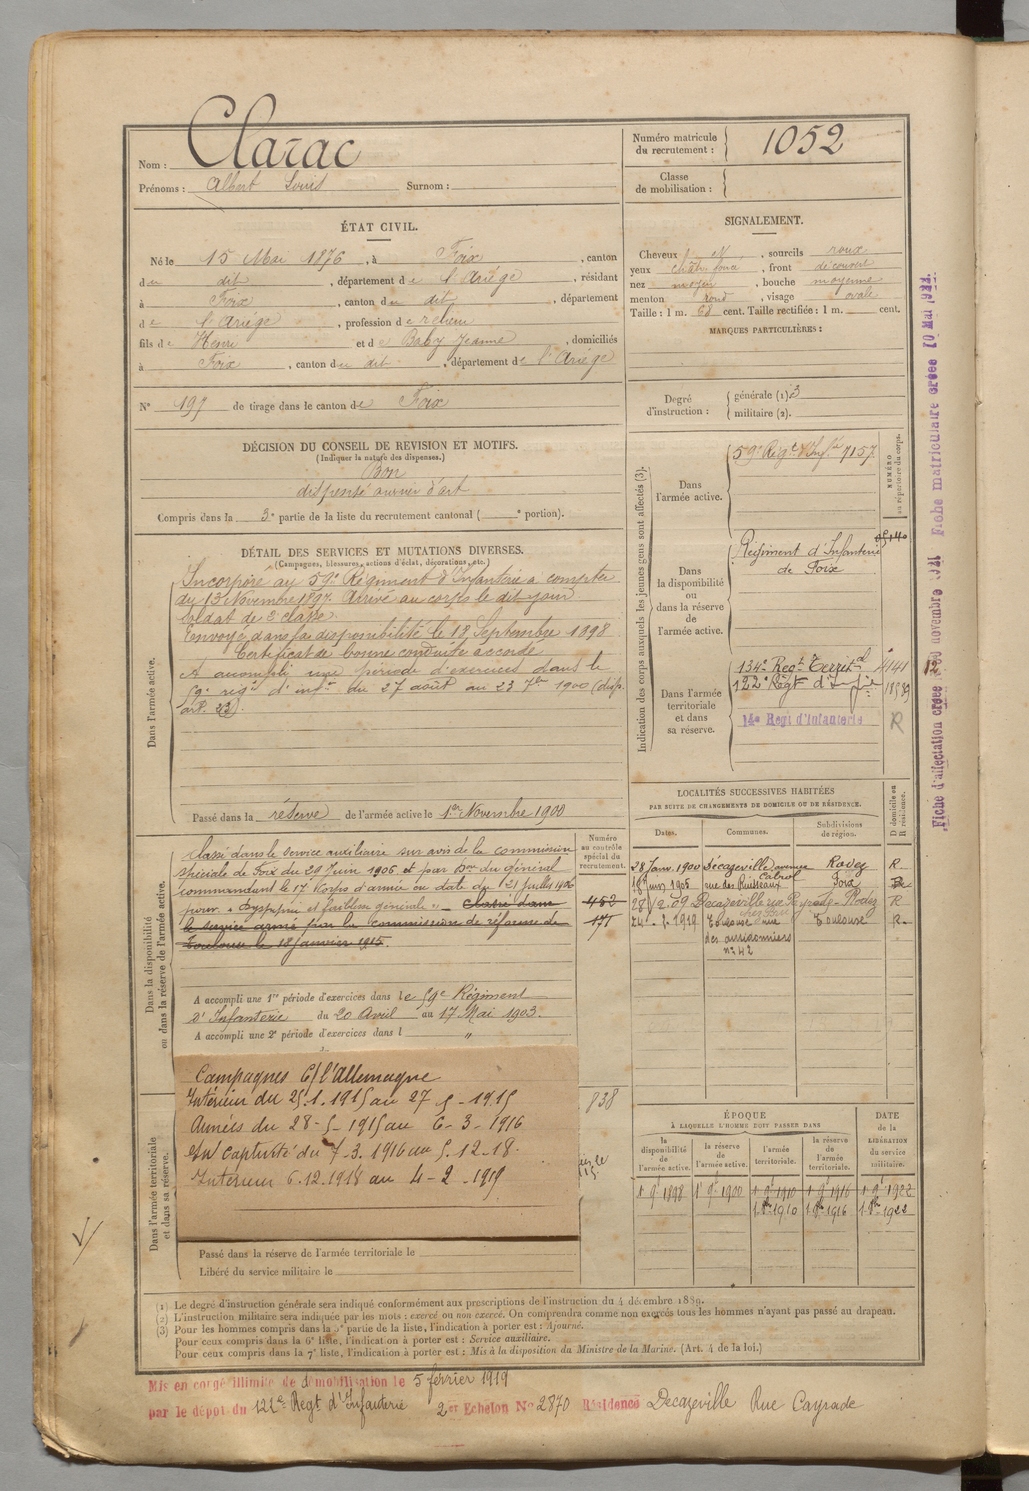 Nom : Clarac
Prénoms : Albert Louis Surnom :
Numéro matricule du recrutement : 1052
Classe de mobilisation :
ÉTAT CIVIL.
Né le 15 Mai 1876, à Foix, canton
du dit, département de l'Ariège, résidant
à Foix, canton du dit, département
de l'Ariège, profession de relieur
fils de Henri et de Baby Jeanne, domiciliés
à Foix, canton du dit, département de l'Ariège
N° 197 de tirage dans le canton de Foix
SIGNALEMENT.
Cheveux, sourcils roux
yeux, front découvert
nez moyen, bouche moyenne
menton rond, visage ovale
Taille : 1 m. 68 cent. Taille rectifiée : 1 m. cent.
MARQUES PARTICULIÈRES :
Degré d'instruction : générale (1) 3
militaire (2).
DÉCISION DU CONSEIL DE REVISION ET MOTIFS.
(Indiquer la nature des dispenses.)
Bon
dispensé ouvrier d'art
Compris dans la 3e partie de la liste du recrutement cantonal ( e portion).
DÉTAIL DES SERVICES ET MUTATIONS DIVERSES.
(Campagnes, blessures, actions d'éclat, décorations, etc.)
Dans l'armée active.
Incorporé au 59e Régiment d'Infanterie à compter
du 13 Novembre 1897. Arrivé au corps le dit jour
soldat de 2e classe.
Envoyé dans la disponibilité le 18 Septembre 1898
Certificat de bonne conduite accordé
A accompli une période d'exercices dans le
59e régt d'infie du 27 août au 23 7bre 1900 (disp.
art. 23)
Passé dans la réserve de l'armée active le 1er Novembre 1900
Indication des corps auxquels les jeunes gens sont affectés (3).
NUMÉRO au répertoire du corps.
Dans l'armée active.
59e Régt d'Infie 7157
Dans la disponibilité ou dans la réserve de l'armée active.
Régiment d'Infanterie
de Foix
Dans l'armée territoriale et dans sa réserve.
134e Regt Territal
122e Régt d'Infie
14e Regt d'Infanterie
R
LOCALITÉS SUCCESSIVES HABITÉES
PAR SUITE DE CHANGEMENTS DE DOMICILE OU DE RÉSIDENCE.
Dates. Communes. Subdivisions de région. D domicile ou R résidence.
28 Janv. 1900 Décazeville avenue Cabrol Rodez R
1905 rue des Ruisseaux Foix
28/2 09 Decazeville rue Rodez R
1919 Toulouse rue Toulouse R
n° 42
Dans la disponibilité ou dans la réserve de l'armée active.
Numéro au contrôle spécial du recrutement.
Classé dans le service auxiliaire sur avis de la commission
spéciale de Foix du 29 Juin 1906 et par Don du général
commandant le 17e Corps d'armée en date du 21 Juillet 1906
pour « Dyspepsie et faiblesse générale ». Classé dans
le service armé par la commission de réforme de
Toulouse le 18 janvier 1915.
A accompli une 1re période d'exercices dans le 59e Régiment
d'Infanterie du 20 Avril au 17 Mai 1903.
A accompli une 2e période d'exercices dans l "
Dans l'armée territoriale et dans sa réserve.
Campagnes C/ l'Allemagne
Intérieur du 25.1.1915 au 27-5-1915
Armées du 28-5-1915 au 6-3-1916
En captivité du 7-3.1916 au 5.12.18.
Intérieur 6.12.1918 au 4-2-1919
838
Passé dans la réserve de l'armée territoriale le
Libéré du service militaire le
ÉPOQUE
À LAQUELLE L'HOMME DOIT PASSER DANS
la disponibilité de l'armée active. la réserve de l'armée active. l'armée territoriale. la réserve de l'armée territoriale. DATE de la LIBÉRATION du service militaire.
1 9bre 1898 1 9bre 1900 1 9bre 1910 1 9bre 1916 1 9bre 1922
(1) Le degré d'instruction générale sera indiqué conformément aux prescriptions de l'instruction du 4 décembre 1889.
(2) L'instruction militaire sera indiquée par les mots : exercé ou non exercé. On comprendra comme non exercés tous les hommes n'ayant pas passé au drapeau.
(3) Pour les hommes compris dans la 5e partie de la liste, l'indication à porter est : Ajourné.
Pour ceux compris dans la 6e liste, l'indication à porter est : Service auxiliaire.
Pour ceux compris dans la 7e liste, l'indication à porter est : Mis à la disposition du Ministre de la Marine. (Art. 4 de la loi.)
Mis en congé illimité de démobilisation le 5 février 1919
par le dépôt du 122e Regt d'Infanterie 2er Echelon No 2870 Résidence Decazeville Rue Cayrade